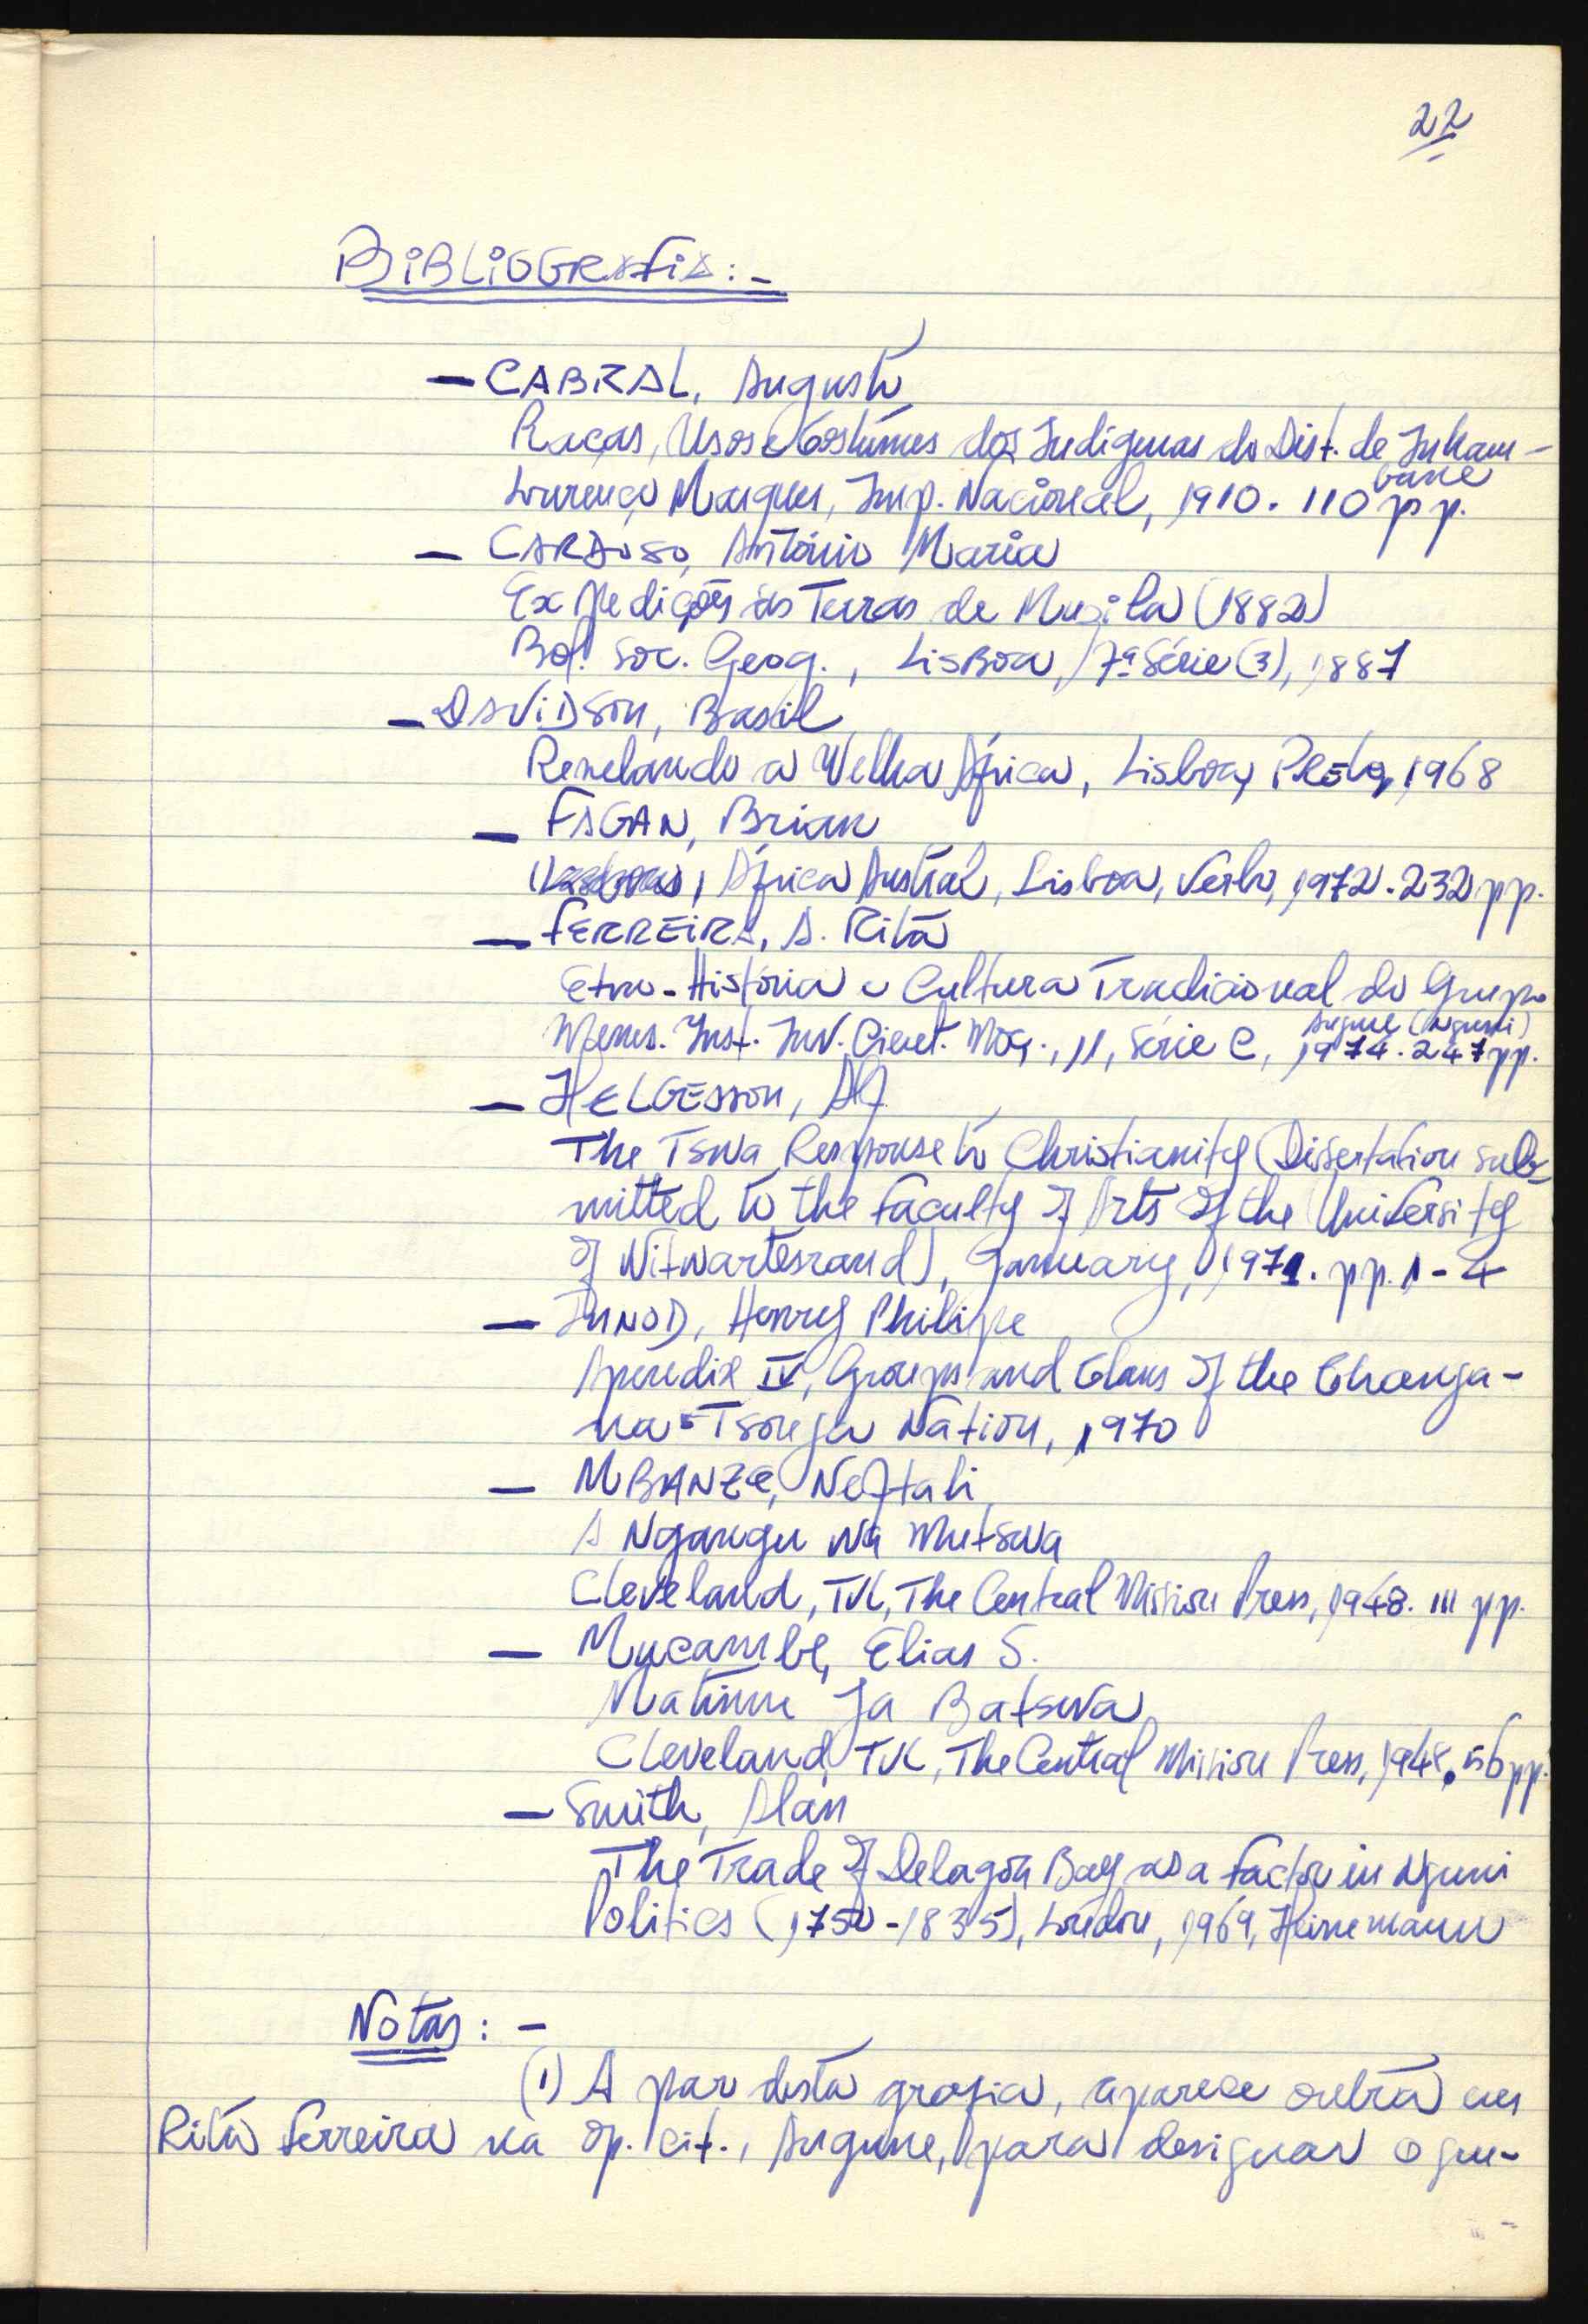 22
BIBLIOGRAFIA: -
— CABRAL, Augusto
Raças, Usos e Costumes dos Indígenas do Dist. de Inham-
bane
Lourenço Marques, Imp. Nacional, 1910. 110 pp.
— CARDOSO, António Maria
Expedições às Terras de Muzila (1882)
Bol. Soc. Geog., Lisboa, 7ª Série (3), 1887
— DAVIDSON, Basil
Revelando a Velha África, Lisboa, Prelo, 1968
— FAGAN, Brian
África Austral, Lisboa, Verbo, 1972. 232 pp.
— FERREIRA, A. Rita
Etno-História e Cultura Tradicional do Grupo
Angune (Nguni)
Mems. Inst. Inv. Cient. Moç., 11, Série C, 1974. 247 pp.
— HELGESSON, Alf
The Tswa Response to Christianity (Dissertation sub-
mitted to the Faculty of Arts of the University
of Witwartesrand), January, 1971. pp. 1-4
— JUNOD, Henry Philipe
Apendix IV, Groups and Clans of the Changa-
na-Tsonga Nation, 1970
— MBANZE, Neftali
A Ngangu wa Mutswa
Cleveland, TVL, The Central Mission Press, 1948. 111 pp.
— Mucambe, Elias S.
Matimu ja Batswa
Cleveland, TVL, The Central Mission Press, 1948. 56 pp.
— Smith, Alan
The Trade of Delagoa Bay as a Factor in Nguni
Politics (1750-1835), London, 1969, Heinemann
Notas: -
(1) A par desta grafia, aparece outra em
Rita Ferreira na op. cit., Angune, para designar o gru-